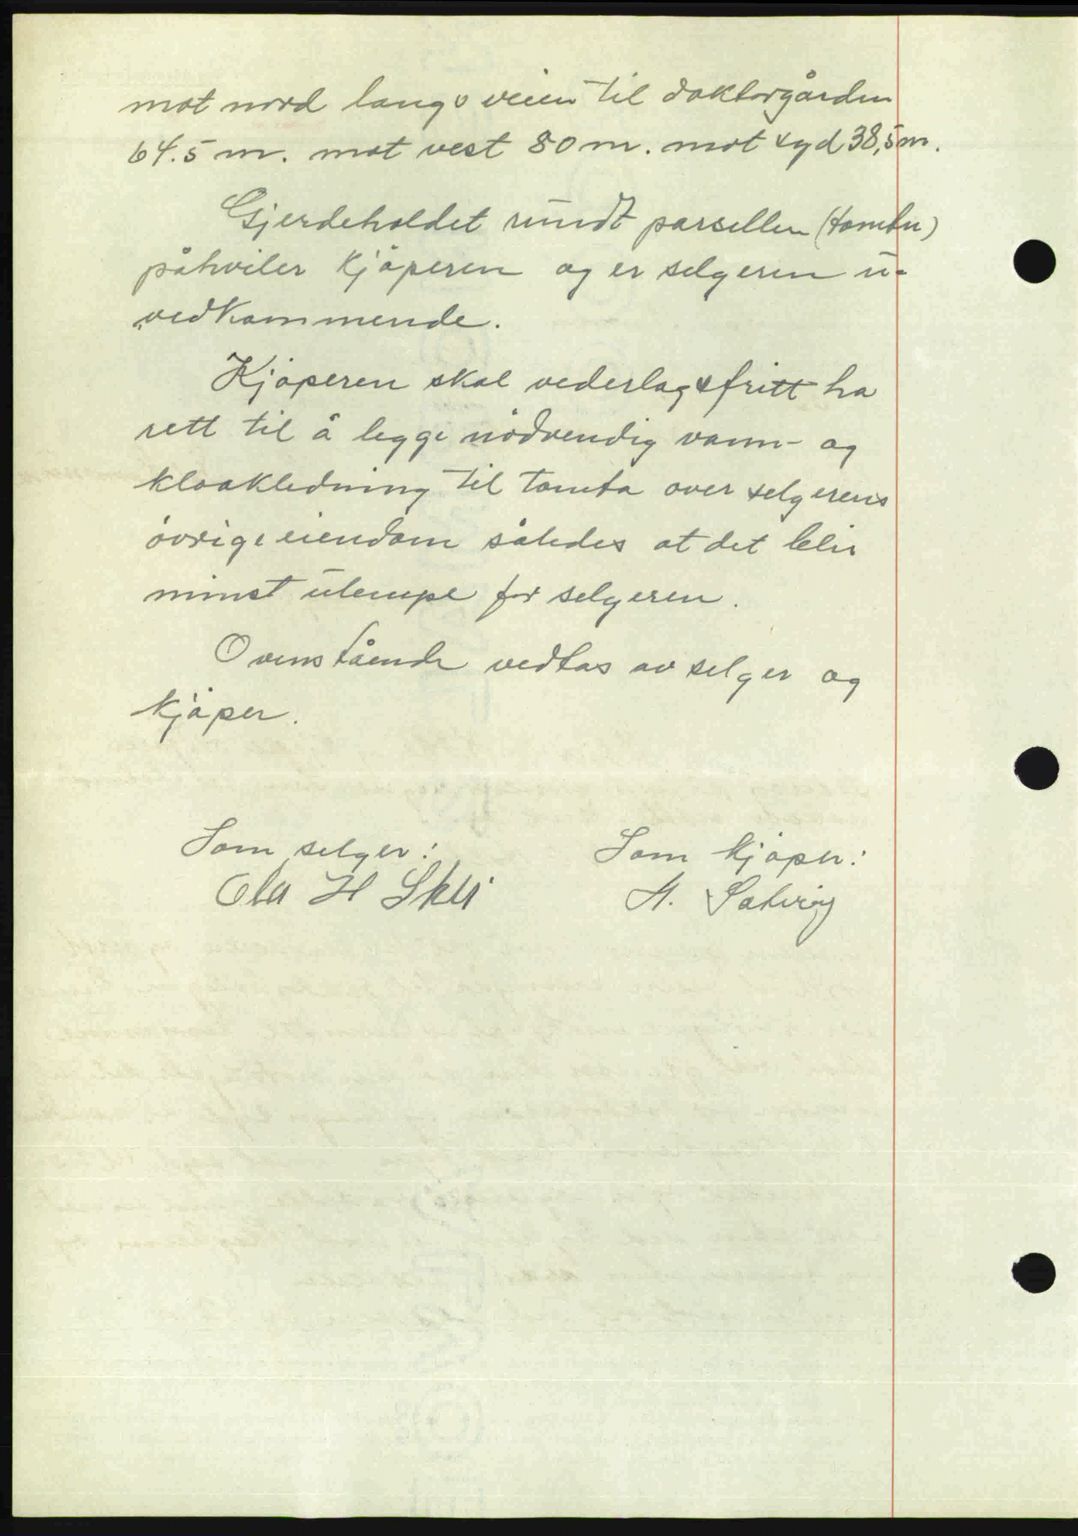 mot nord langs veien til doktorgården
64.5 m. mot vest 80 m. mot syd 38,5 m.
Gjerdeholdet rundt parsellen (tomten)
påhviler kjöperen og er selgeren u-
vedkommende.
Kjöperen skal vederlagsfritt ha
rett til å legge nödvendig vann- og
kloakledning til tomta over selgerens
övrige eiendom således at det blir
minst ulempe for selgeren.
Ovenstående vedtas av selger og
kjöper.
Som selger: Som kjöper:
Ola H